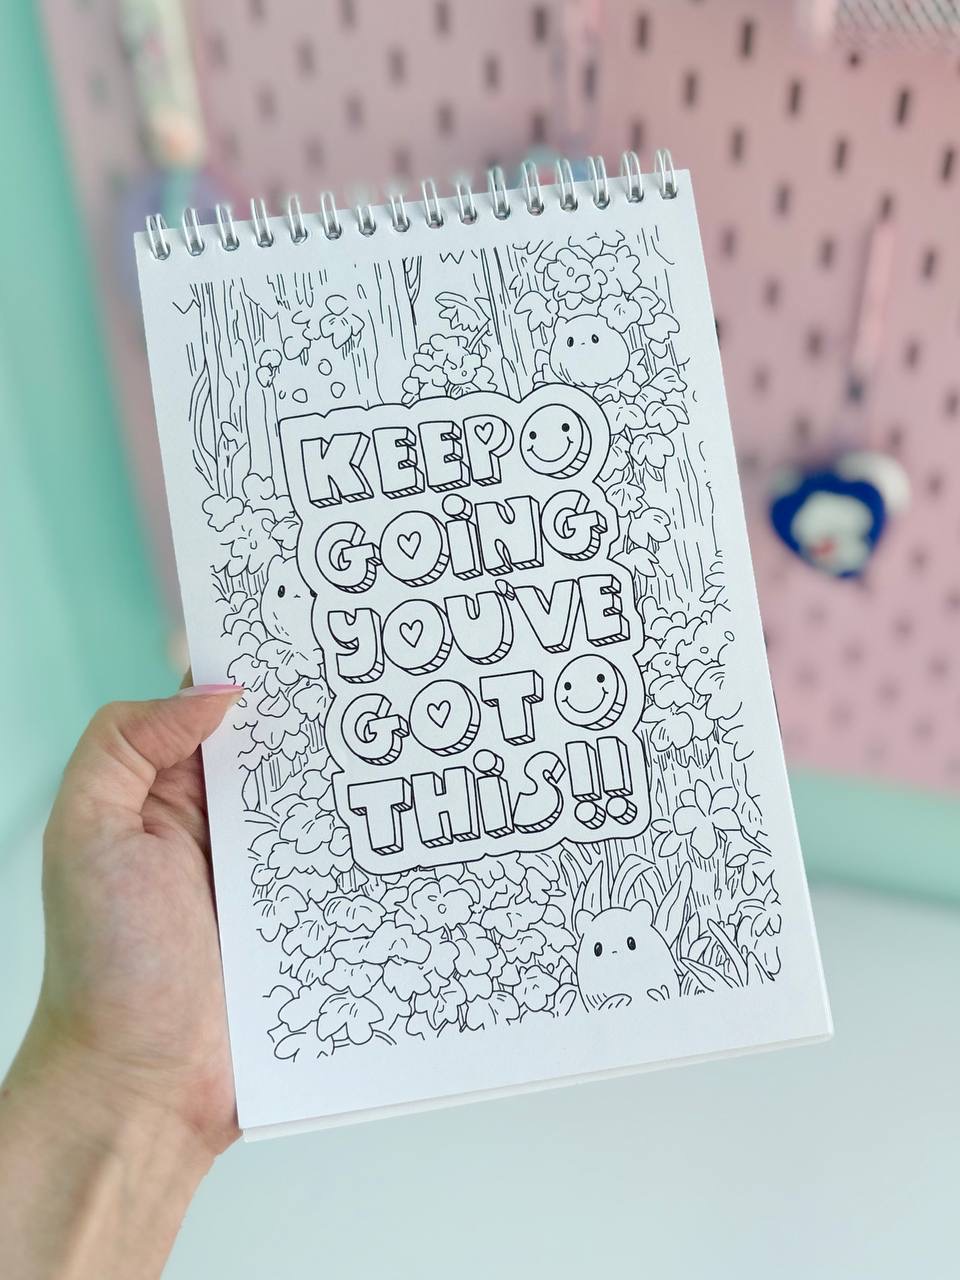 KEEP
GOiNG
YOU'VE
GOT
THiS!!